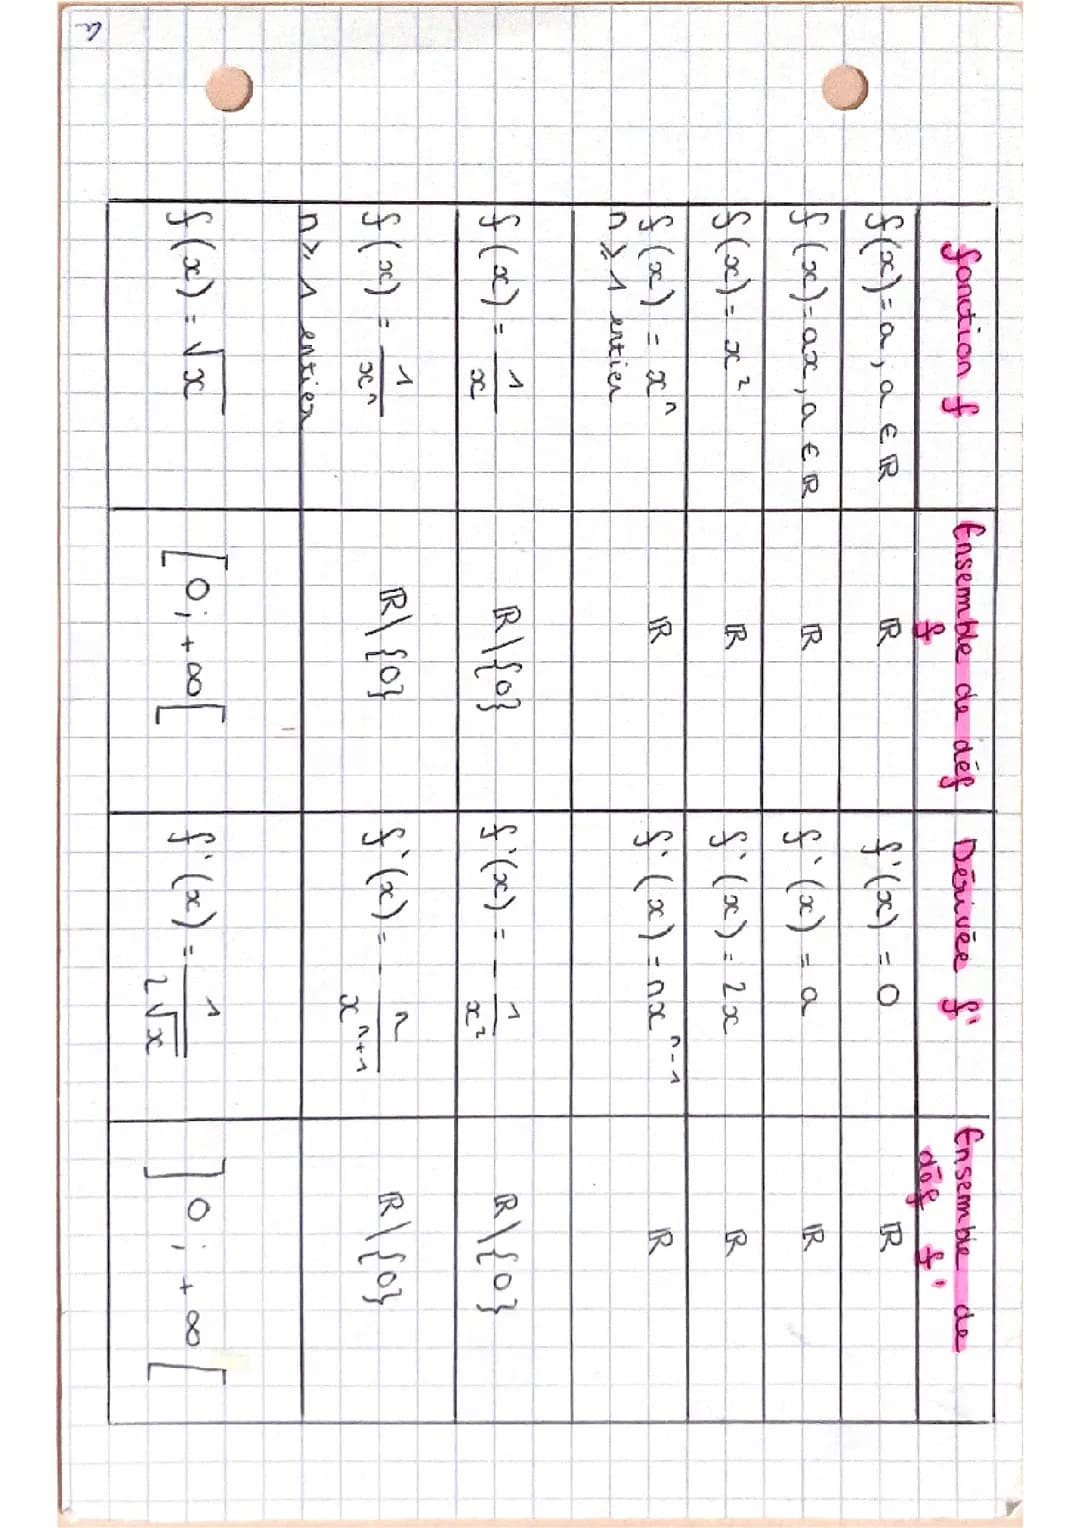 fonction f | Ensemble de déf f | Dérivée f' | Ensemble de déf f'
f(x) = a, a ∈ ℝ | ℝ | f'(x) = 0 | ℝ
f(x) = ax, a ∈ ℝ | ℝ | f'(x) = a | ℝ
f(x) = x² | ℝ | f'(x) = 2x | ℝ
f(x) = xⁿ n ⩾ 1 entier | ℝ | f'(x) = nxⁿ⁻¹ | ℝ
f(x) = 1/x | ℝ\{0} | f'(x) = -1/x² | ℝ\{0}
f(x) = 1/xⁿ n ⩾ 1 entier | ℝ\{0} | f'(x) = -n/xⁿ⁺¹ | ℝ\{0}
f(x) = √x | [0; +∞[ | f'(x) = 1/2√x | ]0; +∞[